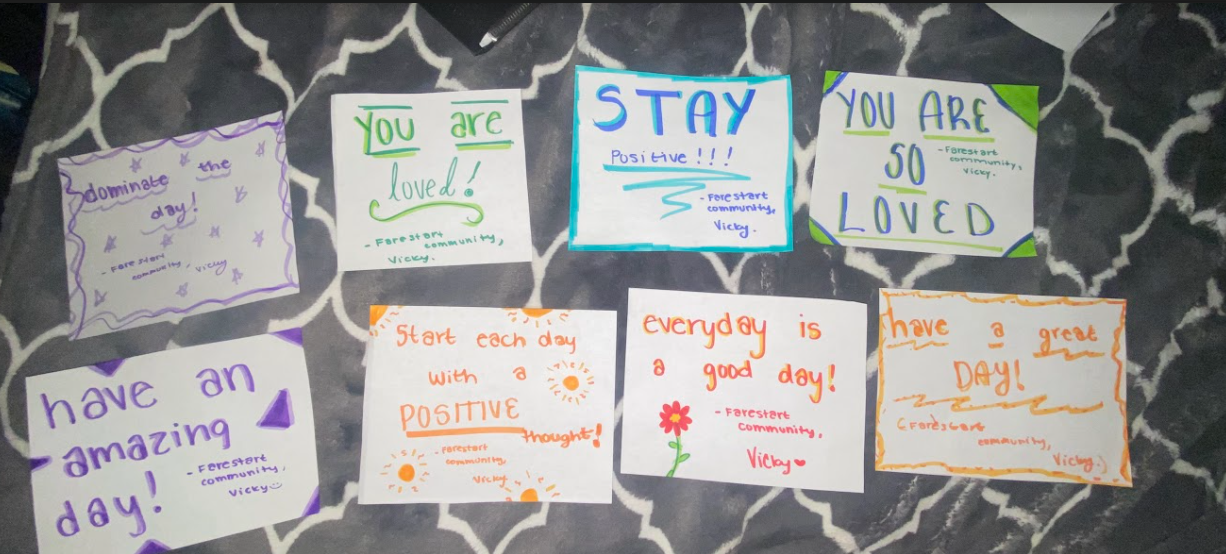 dominate the
day!
- Farestart
community, Vicky
You are
loved!
- Farestart
community,
Vicky.
STAY
Positive!!!
- Farestart
community,
Vicky.
YOU ARE
SO
LOVED
- Farestart
community,
Vicky.
have an
amazing
day!
- Farestart
community,
Vicky☺
Start each day
with a
POSITIVE
thought!
- Farestart
community,
Vicky
everyday is
a good day!
- Farestart
community,
Vicky♥
have a great
DAY!
(Farestart
community,
Vicky.)